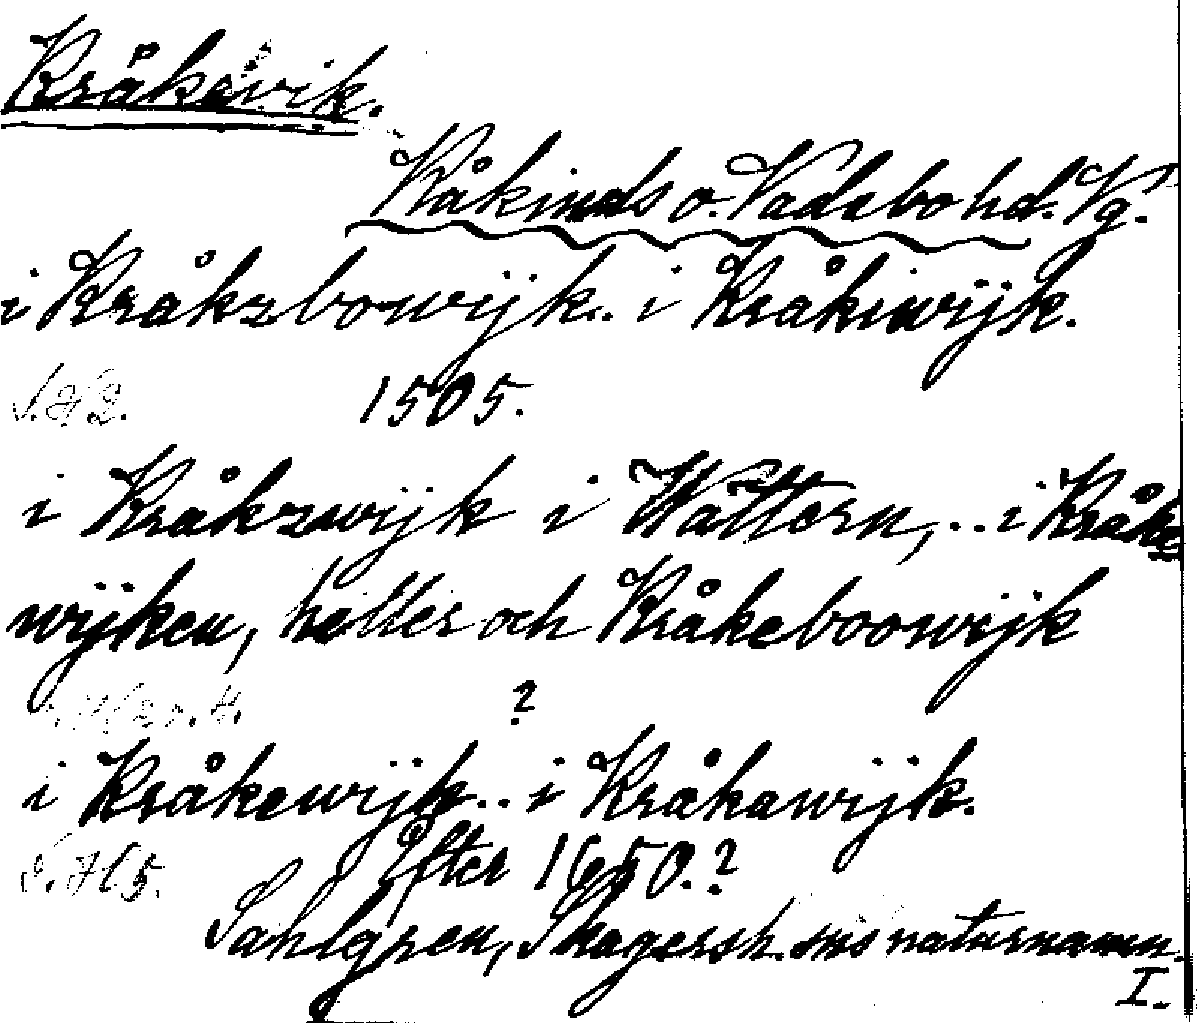 Kråkevik.
Kåkinds o. Vadsbo hd. Vg.
i Kråkzbowijk.. i Kråkiwijk.
S.H2. 1505.
i Kråkzwijk i Wättern,.. i Kråke
wijken, heller och Kråkeboowijk
?
i Kråkewijk... i Kråkawijk.
S.H5. Efter 1650.?
Sahlgren, Skagersh. sns naturnamn.
I.